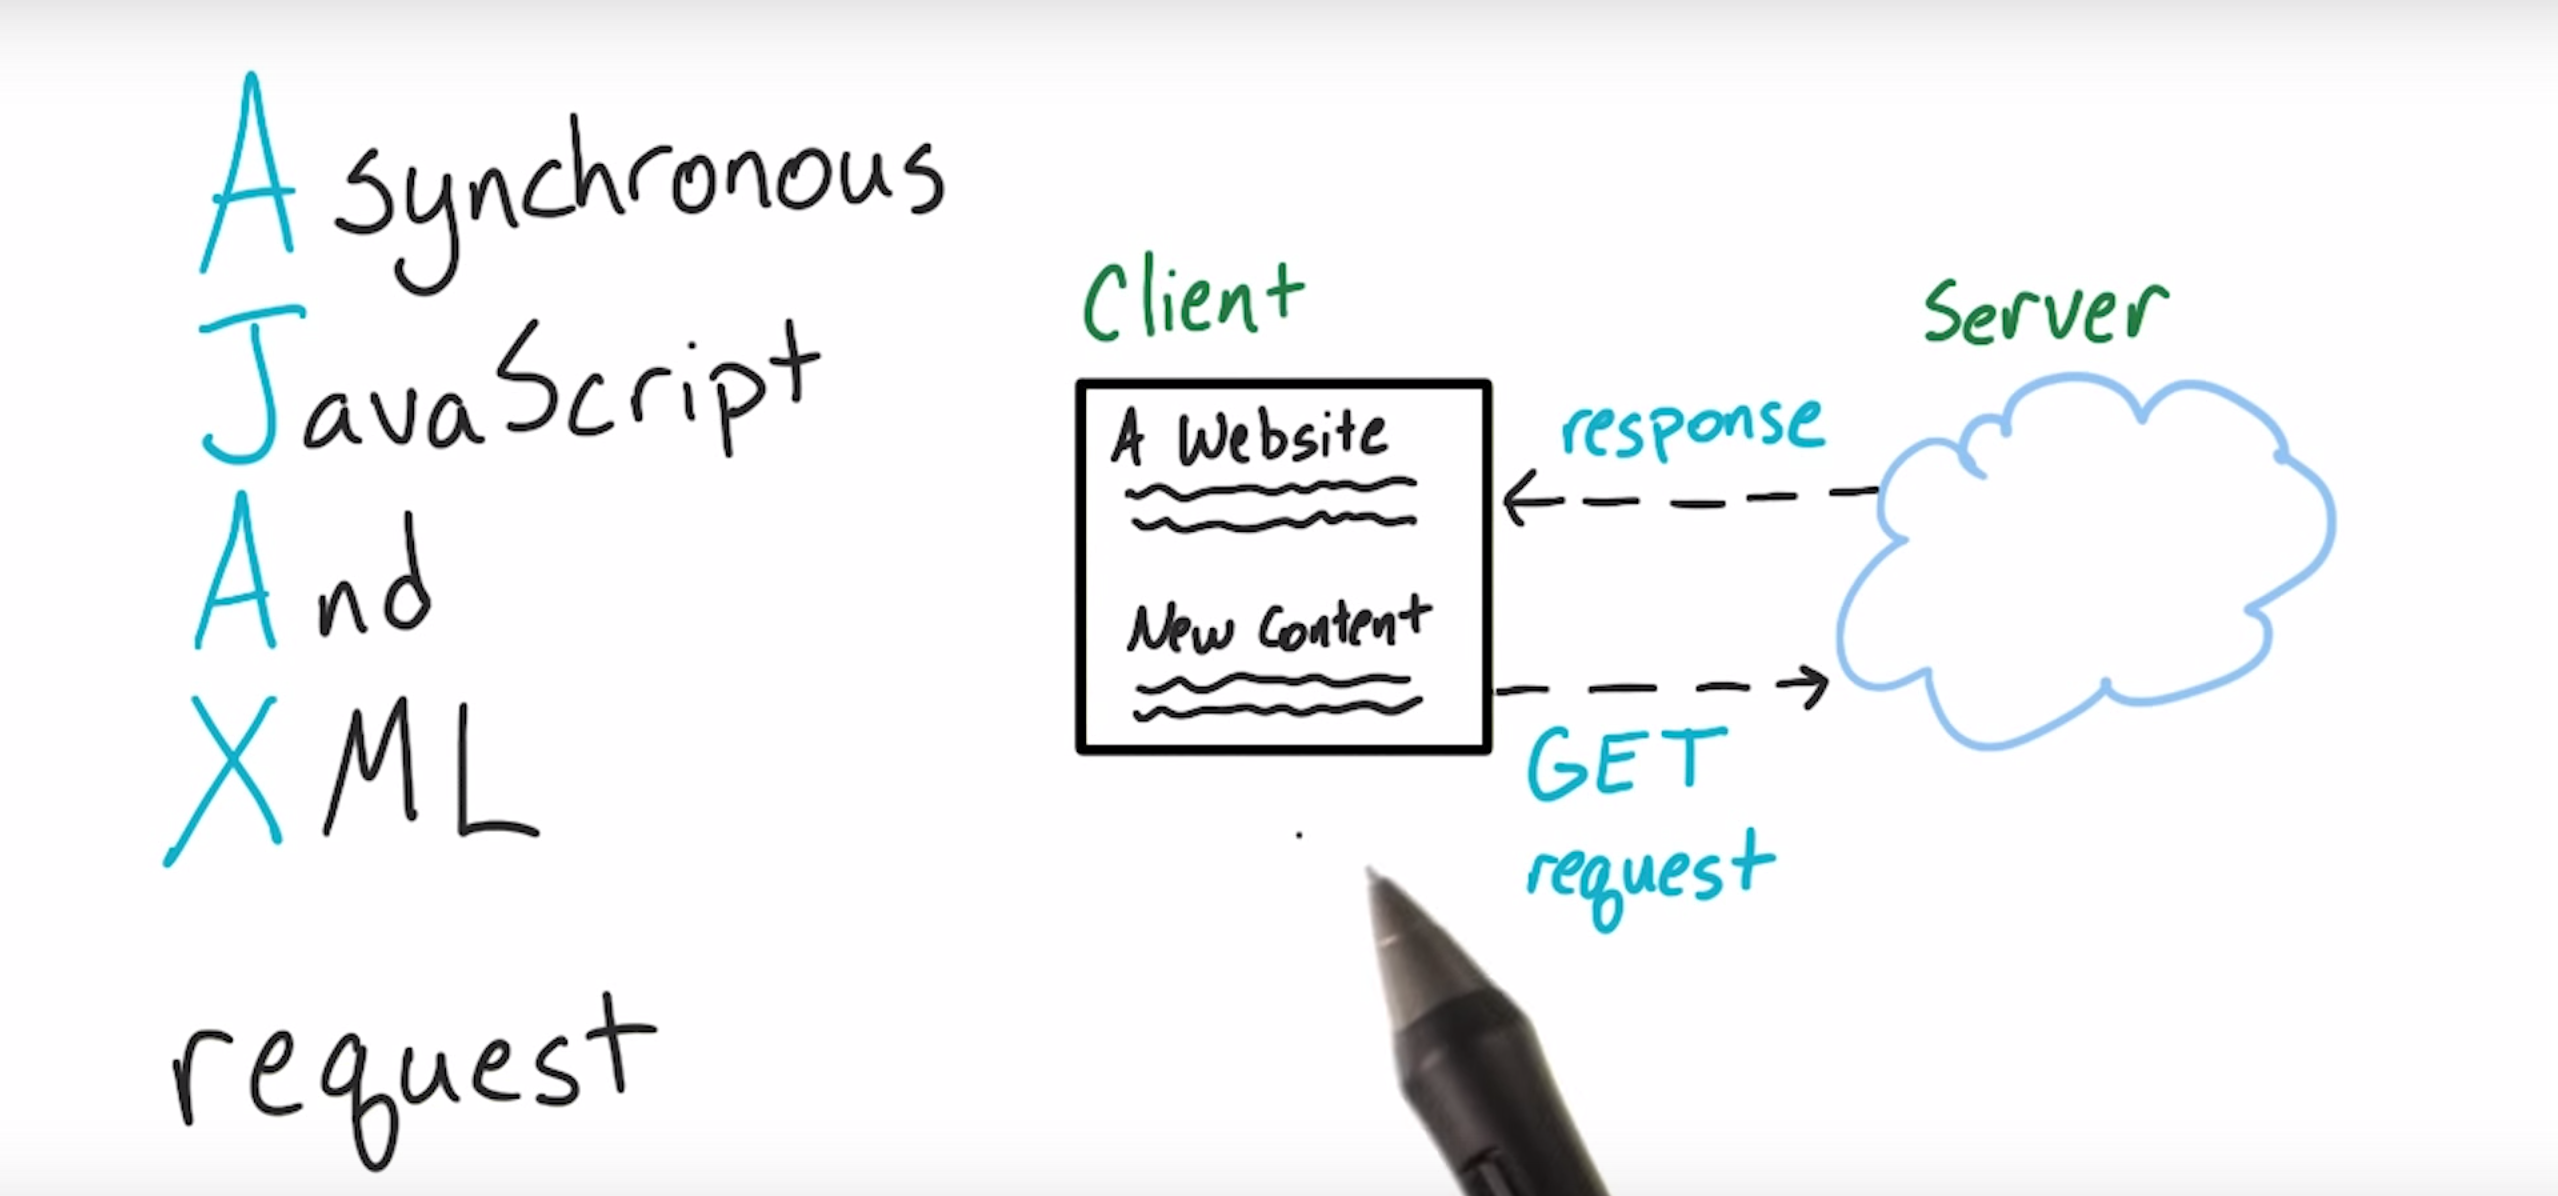 Asynchronous
JavaScript
And
XML
request
Client
Server
A Website
New Content
response
GET
request